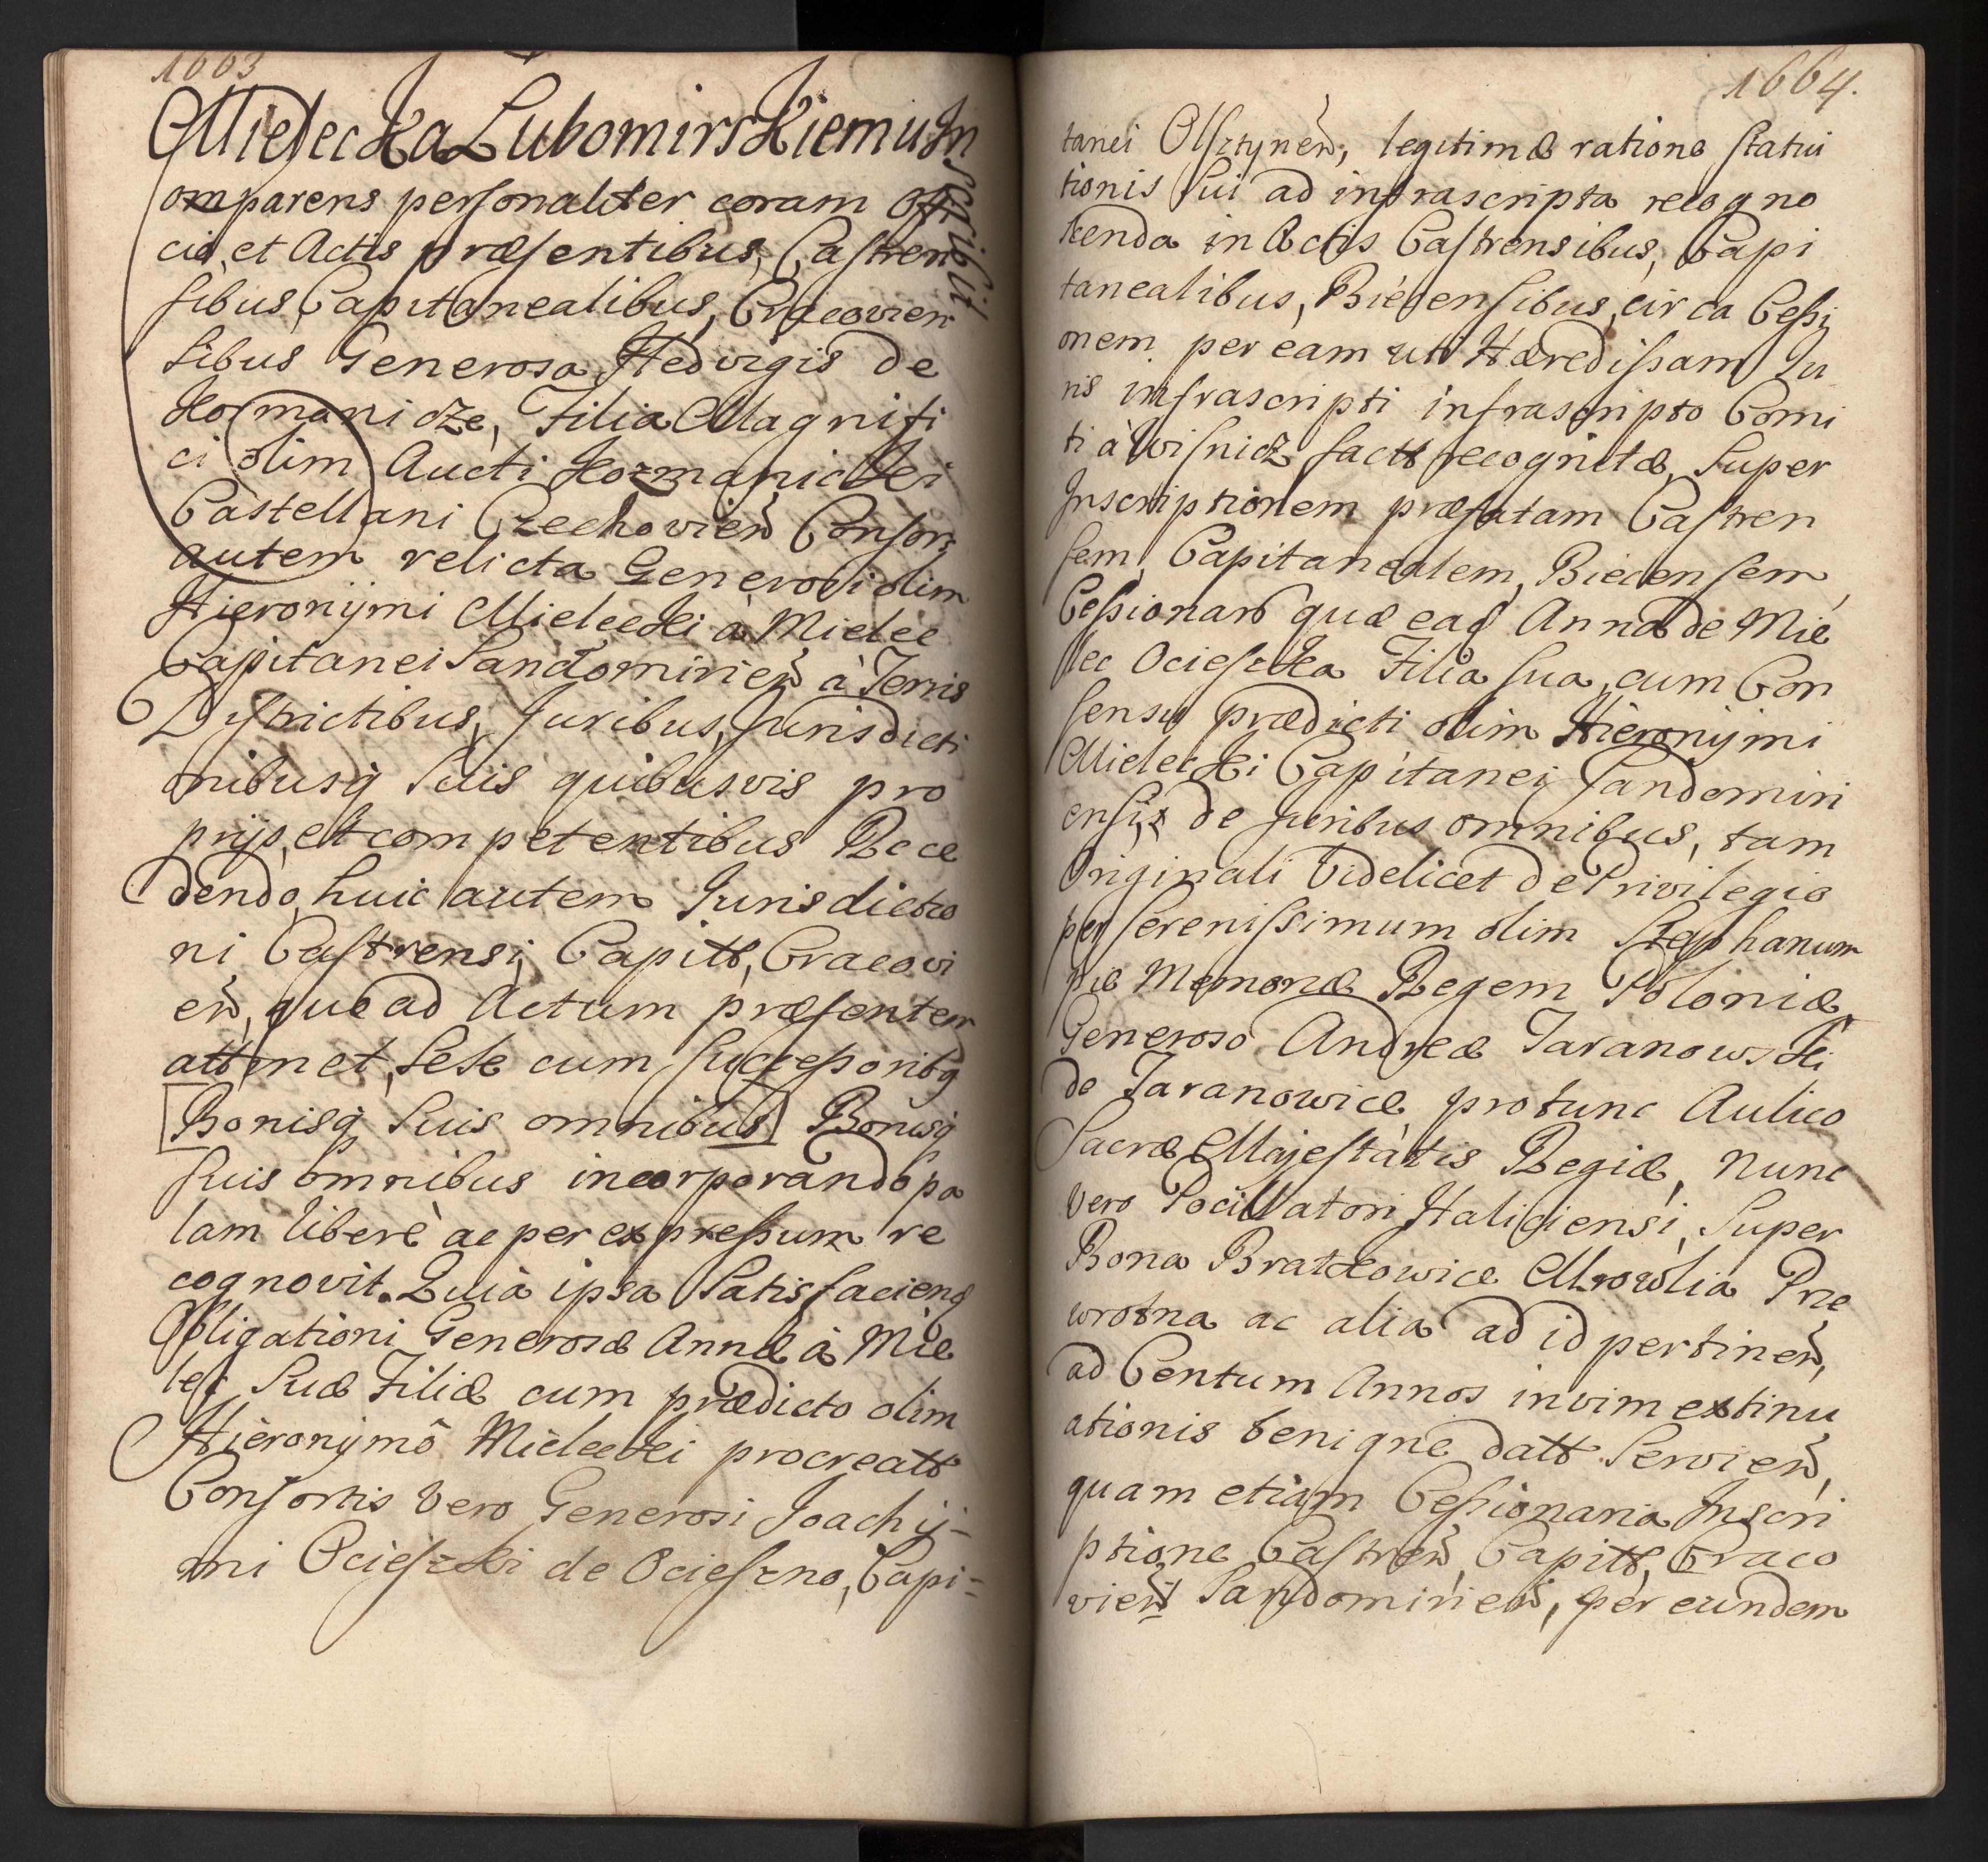 1663
Mielecka Lubomirskiemu In
scribit
Comparens personaliter coram Offi
cio, et Actis præsentibus, Castren
sibus, Capitanealibus, Cracovien
sibus Generosa Hedvigis de
Kormanicze, Filia Magnifi
ci olim Aucti Kormanicki
Castellani Czechovien̄ Consors
autem relicta Generosi olim
Hieronymi Mielecki à Mielec
Capitanei Sandomirien̄ à Terris
Dystrictibus, Juribus, Jurisdicti
onibusq̨ suis quibusvis pro
prijs, et competentibus Rece
dendo, huic autem Jurisdictio
ni Castrensi, Capitt, Cracovi
en̄, quo ad Actum præsentem
attinet, sese cum successoribq
Bonisq̨ suis omnibus Bonisq̨
suis omnibus incorporando pa
lam liberè ac per expressum re
cognovit. Quia ipsa satisfaciend
Obligationi Generosæ Annæ à Mie
lec suæ Filiæ cum prædicto olim
Hieronymô Mielecki procreatt
Consortis vero Generosi Joachy=
mi Ocieszki de Ocieszno, Capi=
1664.
tanei Olsztynen̄, legitimæ ratione statui
tionis sui ad infrascripta recogno
scenda in Actis Castrensibus, Capi
tanealibus, Biecensibus, circa Cessi
onem per eam uti Hæredissam Ju
ris infrascripti infrascripto Comi
ti à Wisnicz factt recognitæ, super
Inscriptionem præfatam Castren
sem, Capitanealem, Biecensem,
Cessionar̄ quæ ead Anna de Mie
lec Ocieszka Filia sua, cum Con
sensu prædicti olim Hieronymi
Mielecki Capitanei Sandomiri
ensis de Juribus omnibus, tam
Originali videlicet de Privilegio
per serenissimum olim Stephanum
piæ Memoriæ Regem Poloniæ
Generoso Andreæ Taranowski
de Taranowice protunc Aulico
Sacræ Majestatis Regiæ, nunc
vero Pocillatori Haliciensi, super
Bona Bratkowice Mrowlia Prze
wrotna ac alia ad id pertinen̄,
ad Centum Annos in vim extenu
ationis benigne datt servien̄,
quam etiam Cessionaria Inscri
ptione Castren̄, Capitt, Craco
vien̄ Sandomirien̄, per eundem